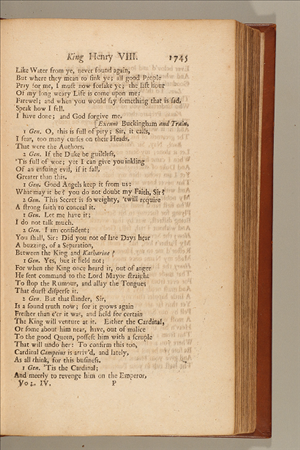 King Henry VIII. 1745
Like Water from ye, never found again,
But where they mean to sink ye; all good People
Pray for me, I must now forsake ye; the last hour
Of my long weary Life is come upon me;
Farewel; and when you would say something that is sad,
Speak how I fell.
I have done; and God forgive me.
[Exeunt Buckingham and Train.
1 Gen. O, this is full of pity; Sir, it calls,
I fear, too many curses on their Heads,
That were the Authors.
2 Gen. If the Duke be guiltless,
'Tis full of woe; yet I can give you inkling
Of an ensuing evil, if it fall,
Greater than this.
1 Gen. Good Angels keep it from us:
What may it be? you do not doubt my Faith, Sir?
2 Gen. This Secret is so weighty, 'twill require
A strong faith to conceal it.
1 Gen. Let me have it;
I do not talk much.
2 Gen. I am confident;
You shall, Sir: Did you not of late Days hear
A buzzing, of a Separation,
Between the King and Katharine?
1 Gen. Yes, but it held not;
For when the King once heard it, out of anger
He sent command to the Lord Mayor straight
To stop the Rumour, and allay the Tongues
That durst disperse it.
2 Gen. But that slander, Sir,
Is a found truth now; for it grows again
Fresher than e'er it was, and held for certain
The King will venture at it. Either the Cardinal,
Or some about him near, have, out of malice
To the good Queen, possest him with a scruple
That will undo her: To confirm this too,
Cardinal Campeius is arriv'd, and lately,
As all think, for this business.
1 Gen. 'Tis the Cardinal;
And meerly to revenge him on the Emperor,
Vol. IV. P